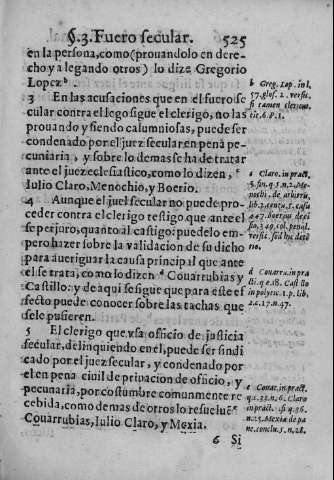 §.3. Fuero secular. 525
en la persona, como (prouandolo en dere-
cho y alegando otros) lo dize Gregorio
Lopez ᵇ.
3 En las acusaciones que en el fuero se
cular contra el lego sigue el clerigo, no las
prouando y siendo calumniosas, puede ser
condenado por el juez secular en pena pe-
cuniaria, y sobre lo demas se ha de tratar
ante el juez eclesiastico, como lo dizen,
Iulio Claro, Menochio, y Boerio.
4 Aunque el juez secular no puede pro-
ceder contra el clerigo testigo que ante el
se perjuro, quanto al castigo: puede lo em-
pero hazer sobre la validacion de su dicho
para aueriguar la causa principal que ante
el se trata, como lo dizen Couarrubias y
Castillo: y de aqui se sigue que para este ef
fecto puede conocer sobre las tachas que
se le pusieren.
5 El clerigo que vsa officio de justicia
secular, delinquiendo en el, puede ser sindi
cado por el juez secular, y condenado por
el en pena ciuil de priuacion de officio, y
pecunaria, por costumbre comunmente re
cebida, como demas de otros lo resuelue
Couarrubias, Iulio Claro, y Mexia.
6 Si
b Greg. Lop. in l.
57. glos. 2. versic.
si tamen clericus,
tit. 6. P. 1.
c Claro. in pract.
5. §. q. 5. n. 2. Me-
noch. de arbitr.
lib. 2. centu. 5. casu
d Couar. in pra
cti. q e. 18. Castillo
in polytic. 1. p. lib.
2. c. 17. n. 47.
e Couar. in pract.
q. e. 33. n. 6. Claro
in pract. q. 36.
n. 25. Mexia de pa
ne, conclu. 5. n. 28.